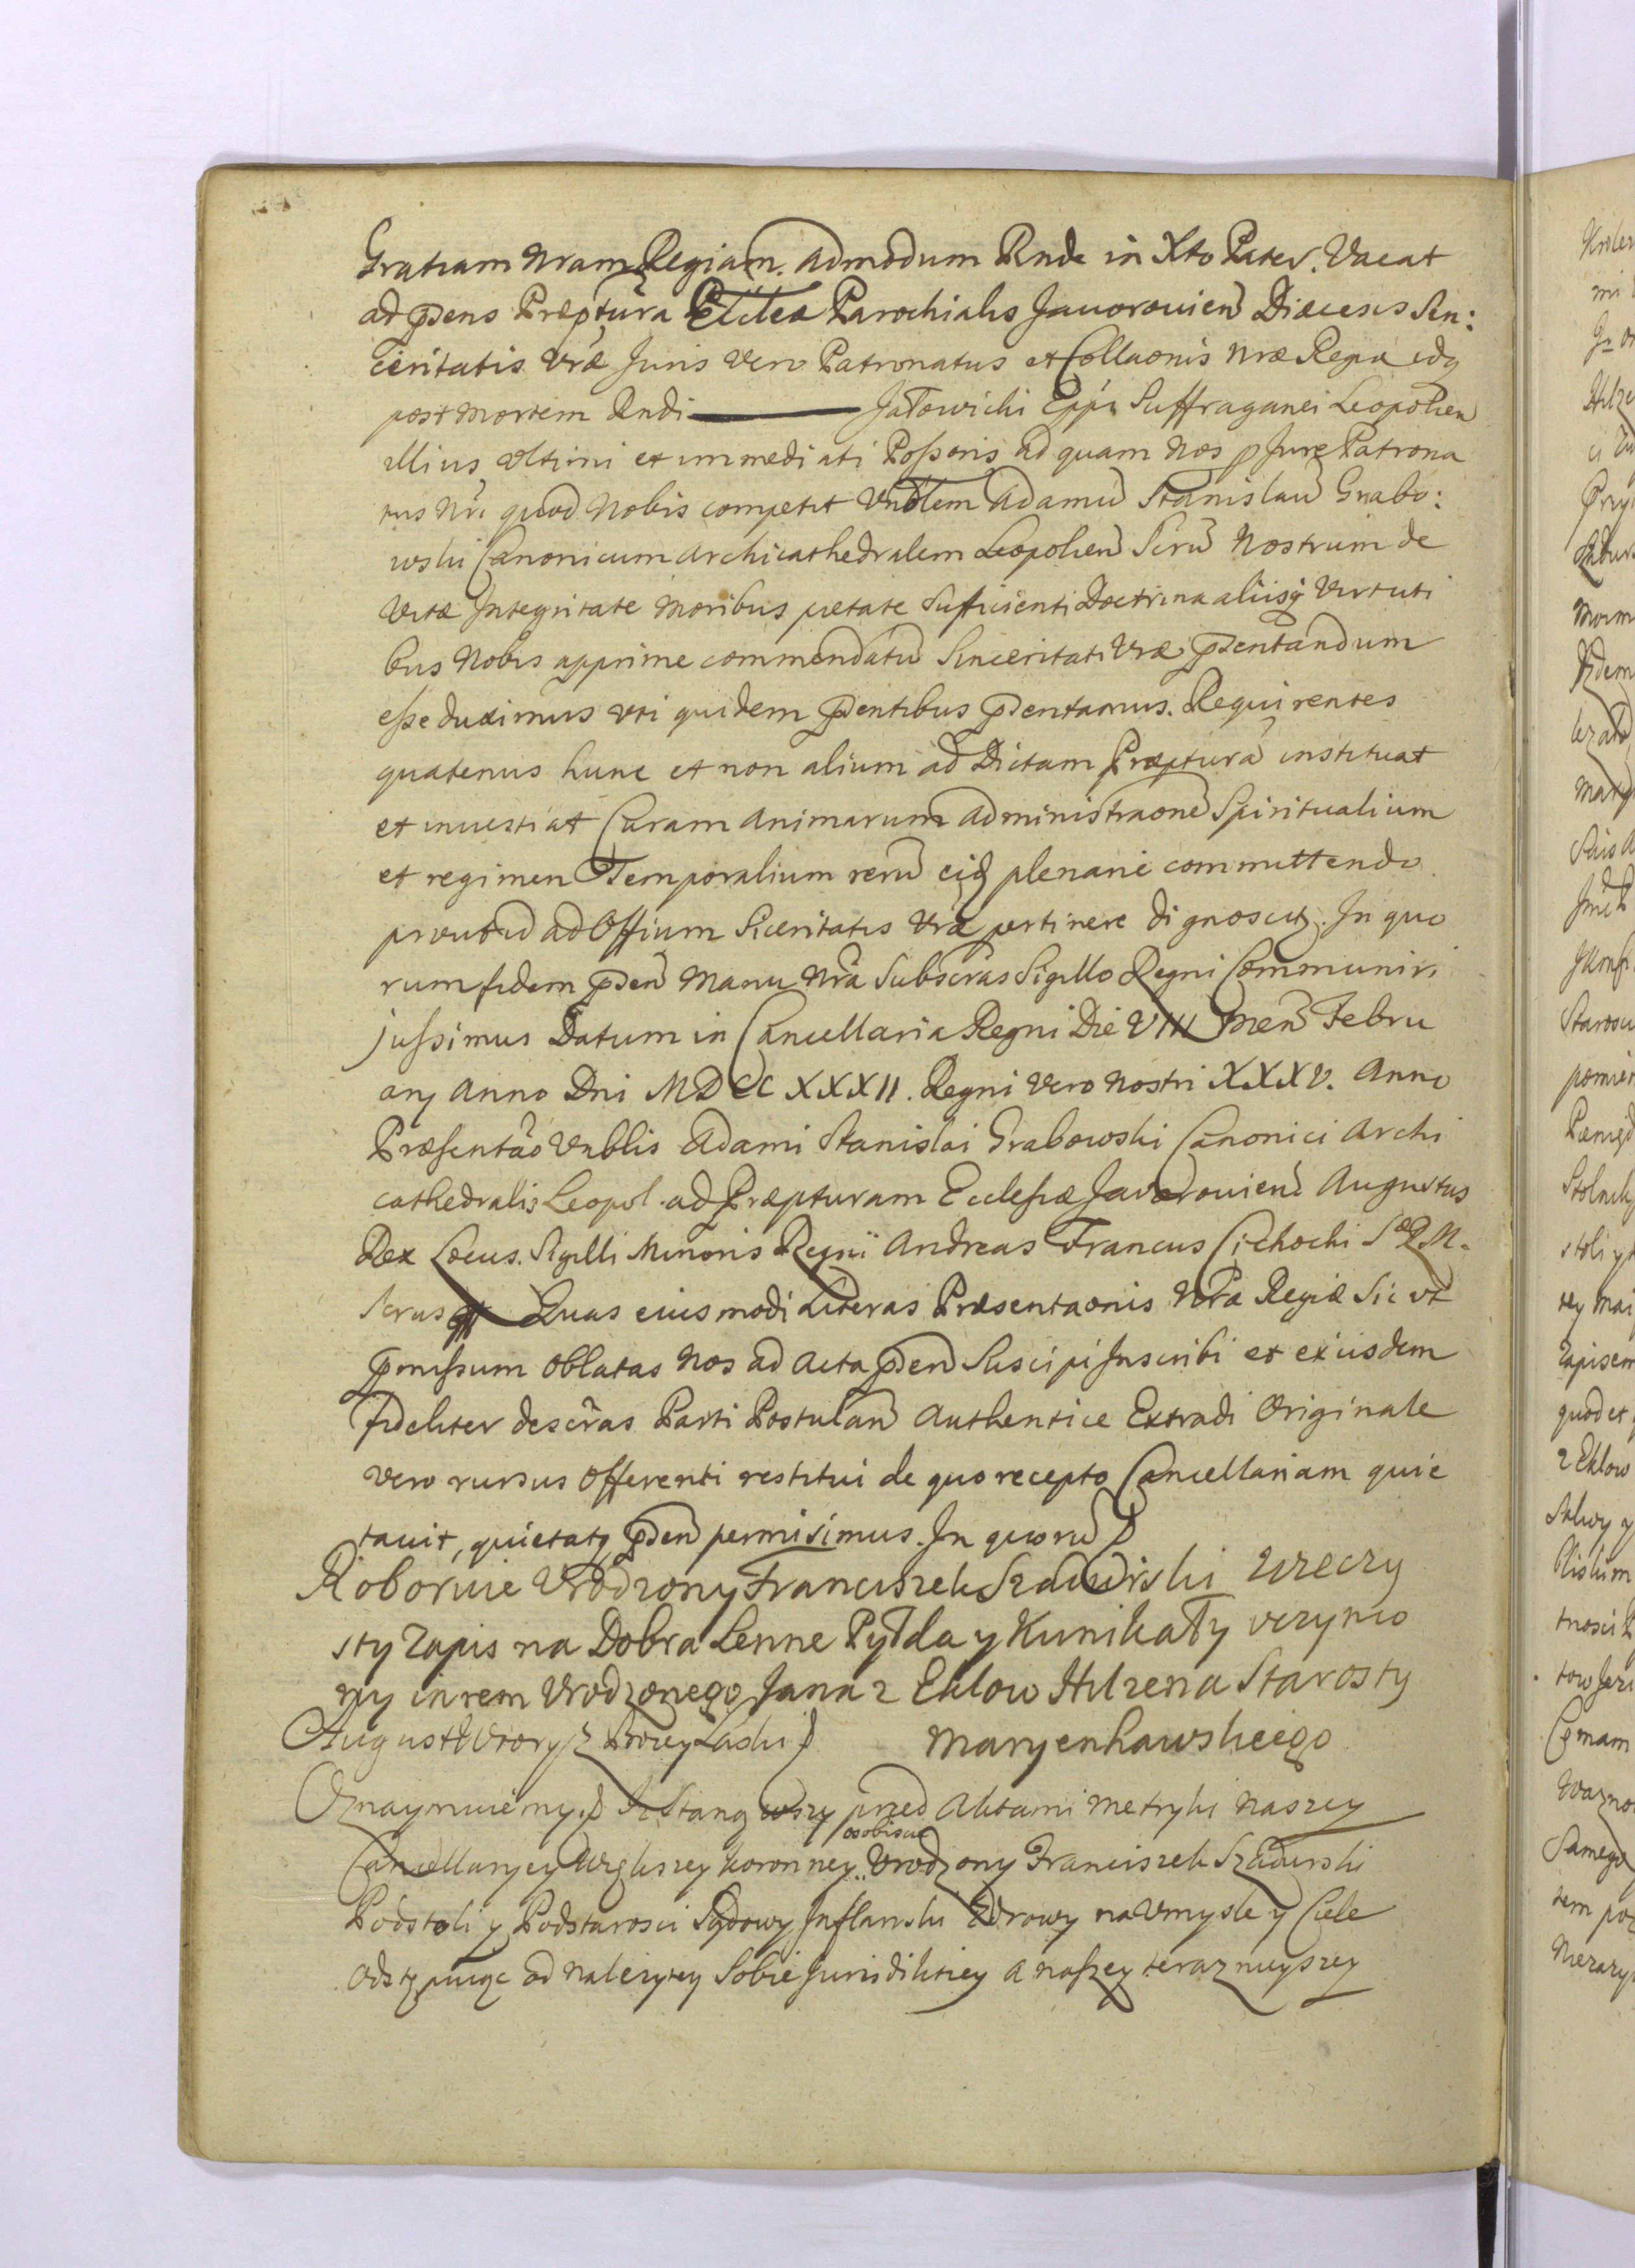 Gratiam Nram Regiam. Admodum Rnde in Xto Pater. Vacat
ad pns Præptura Ecclæ Parochialis Javoroviens Diæcesis Sin:
ceritatis Vræ Juris Vero Patronatus et Collaonis Nræ Regiæ idq
post mortem Rndi ——— Jałowicki Eppi Suffraganei Leopolien
illius Ultimi et immediati Possoris ad quam Nos p Jure Patrona
tus Nri quod Nobis competit Vnblem Adamu Stanislau Grabo:
wski Canonicum Archicathedralem Leopolien Scru Nostrum de
Vitæ Integritate Moribus pietate Sufficienti Doctrina aliisq Virtuti
bus Nobis apprime commendatu Sinceritati Vræ pntandum
esse duximus vti quidem pntibus pntamus. Requirentes
quatenus hunc et non alium ad Dictam Præptura instituat
et investiat Curam Animarum Administraone Spiritualium
et regimen Temporalium reru eiq plenarie committendo
prout id ad Offium Sceritatis Vræ pertinere dignoscit. In quo
rum fidem pnn Manu Nra Subscras Sigillo Regni Communiri
jussimus Datum in Cancellaria Regni Die VIII Men Febru
arij Anno Dni MDCCXXXII. Regni Vero Nostri XXXV. Anno
Præsentao Vnblis Adami Stanislai Grabowski Canonici Archi
cathedralis Leopol. ad Præpturam Ecclesiæ Javoroviens Augustus
Rex Locus. Sigilli Minoris Regni Andreas Francus Cichocki S R M.
Scrus Quas eiusmodi Literas Præsentaonis Nræ Regiæ Sic vt
pmissum Oblatas Nos ad Acta pnn Suscipi Inscribi et exiisdem
fideliter descras Parti Postulan Authentice Extradi Originale
vero rursus Offerenti restitui de quo recepto Cancellariam quie
tavit, quietatq pnn permisimus. In quoru
Roboruie Vrodzony Franciszek Szadurski Wieczy
sty Zapis na Dobra Lenne Pyłda y Kunikały vczynio
ny in rem Vrodzonego Jana z Eklow Hilzena Starosty
August Wtory z Bozey Łaski Maryenhawskiego
Oznaymuiemy Iz Stanąwszy przed Aktami Metryki Naszey
Cancellaryey Większey Koronney osobiscie Vrodzony Franciszek Szadurski
Podstoli y Podstarosci Sądowy Inflanski Zdrowy na Vmysle y Ciele
Odstępuiąc od Nalezytey Sobie Jurisdiktiey a naszey teraznieyszey